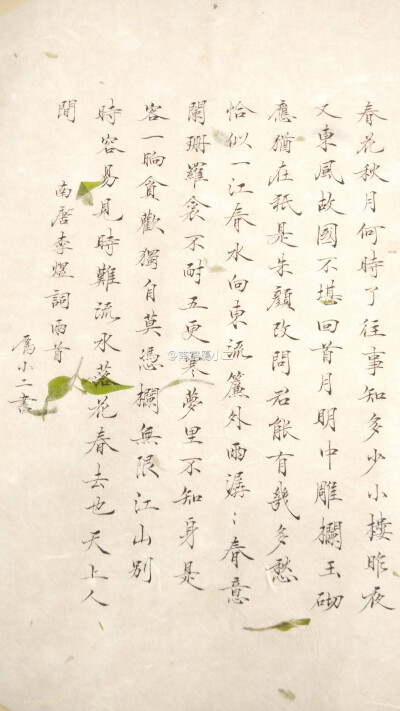 春花秋月何時了往事知多少小樓昨夜
又東風故國不堪回首月明中雕攔玉砌
應猶在祇是朱顏改問君能有幾多愁
恰似一江春水向東流簾外雨潺〻春意
闌珊羅衾不耐五更寒夢里不知身是
客一晌貪歡獨自莫憑攔無限江山別
時容易見時難流水落花春去也天上人
間
南唐李煜詞兩首
小二書